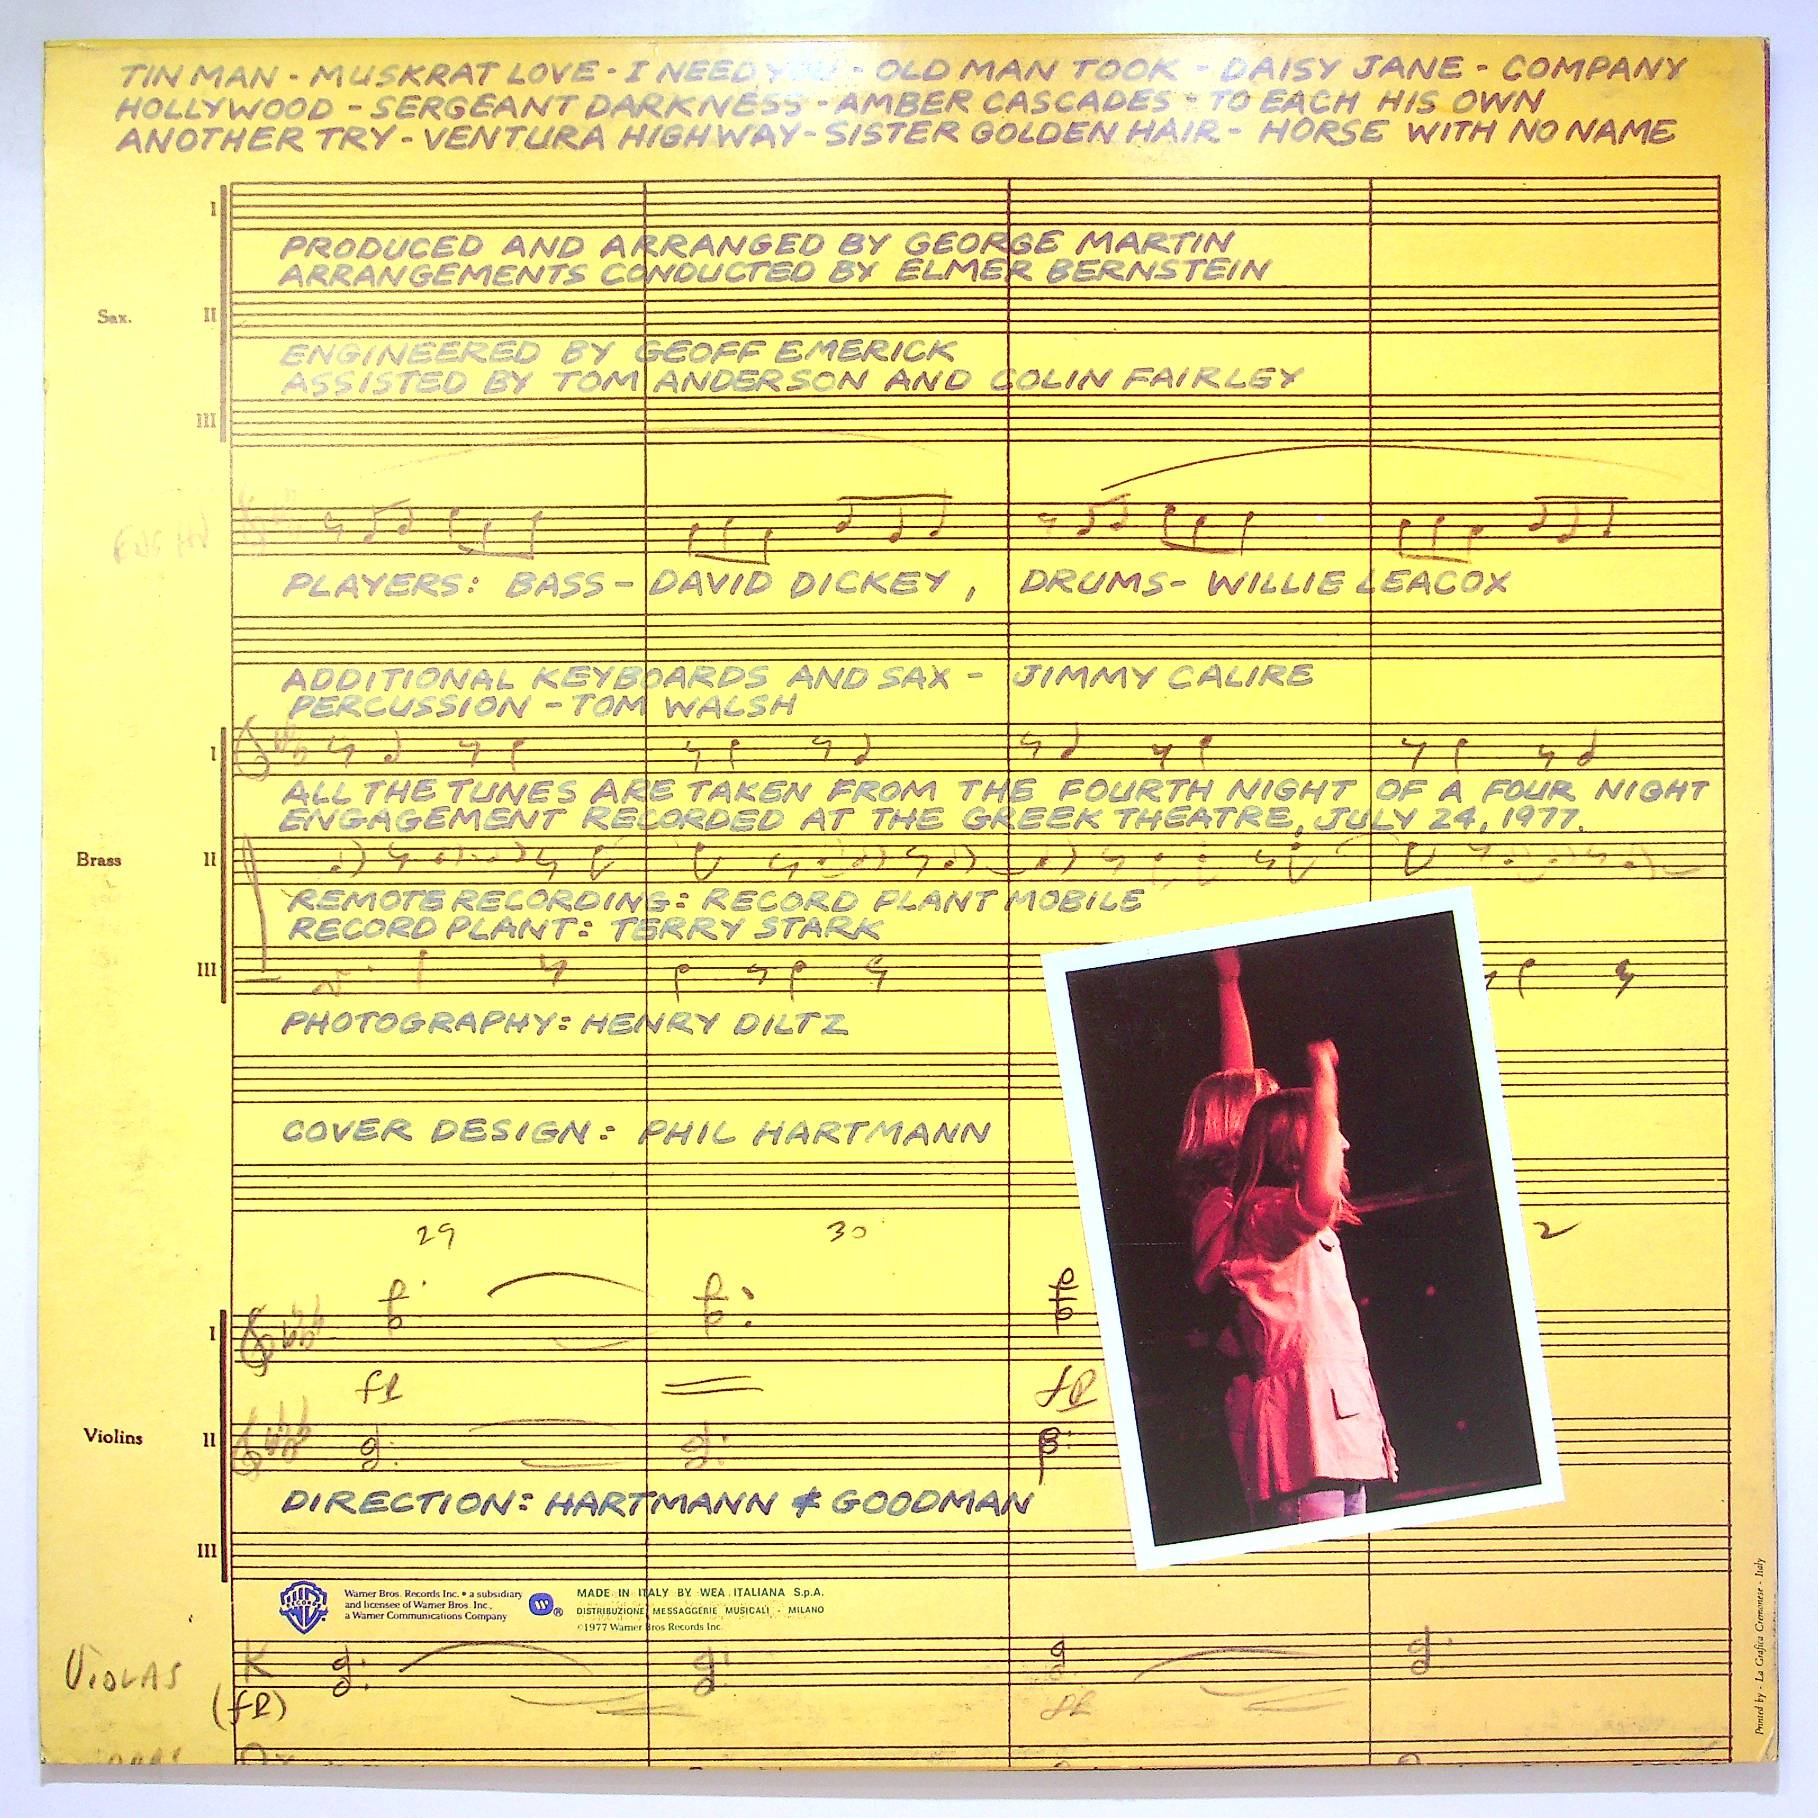 TIN MAN - MUSKRAT LOVE - I NEED YOU - OLD MAN TOOK - DAISY JANE - COMPANY
HOLLYWOOD - SERGEANT DARKNESS - AMBER CASCADES - TO EACH HIS OWN
ANOTHER TRY - VENTURA HIGHWAY - SISTER GOLDEN HAIR - HORSE WITH NO NAME
I
PRODUCED AND ARRANGED BY GEORGE MARTIN
ARRANGEMENTS CONDUCTED BY ELMER BERNSTEIN
Sax. II
ENGINEERED BY GEOFF EMERICK
ASSISTED BY TOM ANDERSON AND COLIN FAIRLEY
III
PLAYERS: BASS - DAVID DICKEY, DRUMS - WILLIE LEACOX
ADDITIONAL KEYBOARDS AND SAX - JIMMY CALIRE
PERCUSSION - TOM WALSH
I
ALL THE TUNES ARE TAKEN FROM THE FOURTH NIGHT OF A FOUR NIGHT
ENGAGEMENT RECORDED AT THE GREEK THEATRE, JULY 24, 1977.
Brass II
REMOTE RECORDING: RECORD PLANT MOBILE
RECORD PLANT: TERRY STARK
III
PHOTOGRAPHY: HENRY DILTZ
COVER DESIGN: PHIL HARTMANN
29 30 2
I
fp fp
Violins II
DIRECTION: HARTMANN & GOODMAN
III
WB RECORDS
Warner Bros. Records Inc. • a subsidiary
and licensee of Warner Bros. Inc.,
a Warner Communications Company
W ®
MADE IN ITALY BY WEA ITALIANA S.p.A.
DISTRIBUZIONE MESSAGGERIE MUSICALI - MILANO
©1977 Warner Bros Records Inc.
VIOLAS
(fp) fp
Printed by - La Grafica Cremonese - Italy